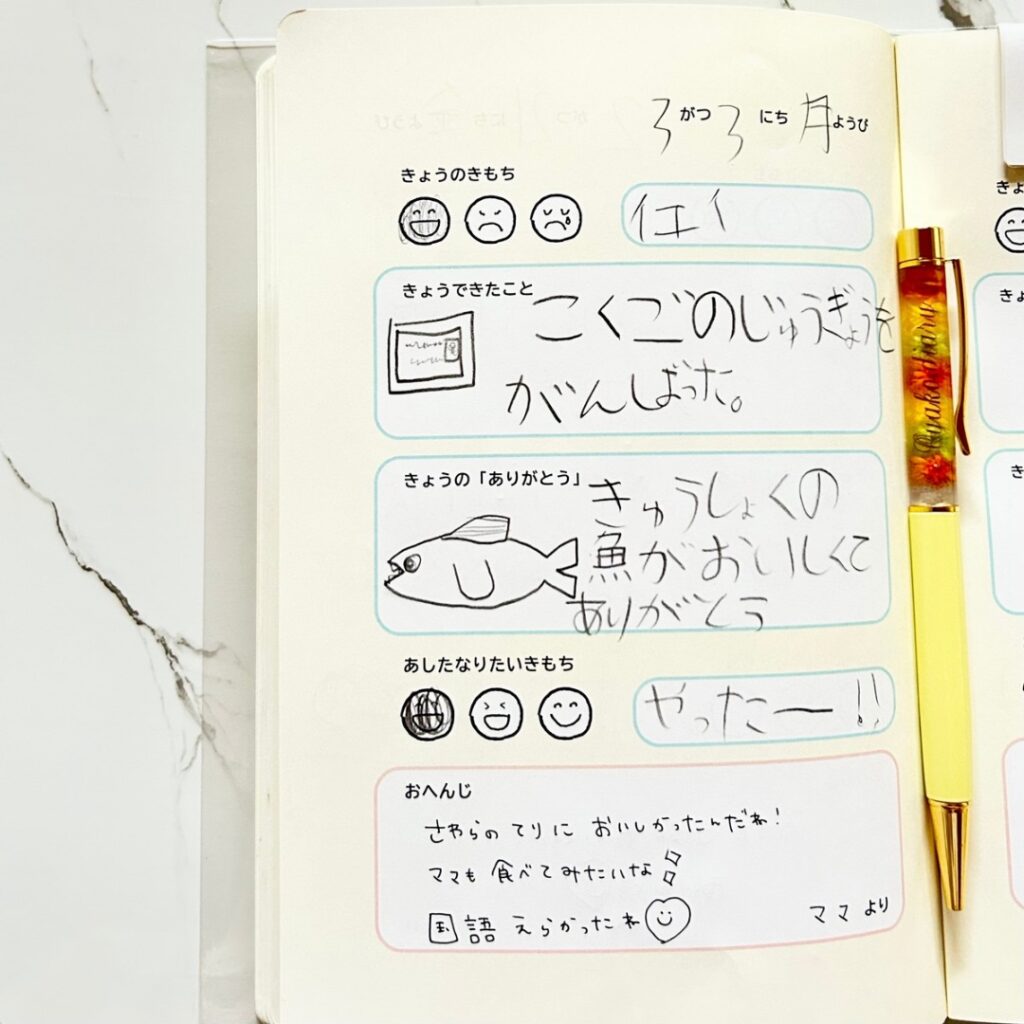 3がつ3にち月ようび
きょうのきもち
イエイ
きょうできたこと
こくごのじゅうぎょうを
がんばった。
きょうの「ありがとう」
きゅうしょくの
魚がおいしくて
ありがとう
あしたなりたいきもち
やったー!!
おへんじ
さわらの てりに おいしかったんだね!
ママも 食べてみたいな
国語 えらかったね
ママ より
Oyako diary